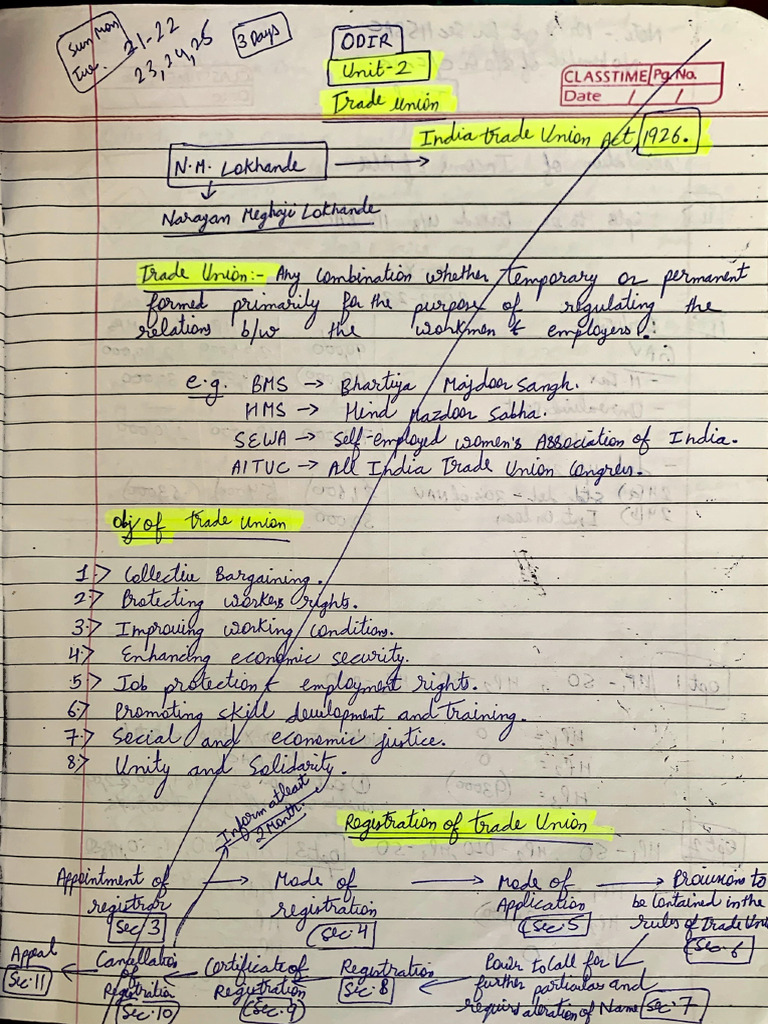 Sun, Mon
Tue. 21-22
23, 24, 25
3 Days
ODIR
Unit-2
Trade Union
CLASSTIME Pg. No.
Date / /
India trade Union Act 1926.
N.M. Lokhande →
↓
Narayan Meghaji Lokhande
Trade Union:- Any combination whether temporary or permanent
formed primarily for the purpose of regulating the
relations b/w the workmen & employers.
e.g. BMS → Bhartiya Majdoor Sangh.
HMS → Hind Mazdoor Sabha.
SEWA → Self-employed women's Association of India.
AITUC → All India Trade Union Congress.
Obj of trade union
1.> Collective Bargaining.
2.> Protecting workers rights.
3.> Improving working conditions.
4.> Enhancing economic security.
5.> Job protection & employment rights.
6.> Promoting skill development and training.
7.> Social and economic justice.
8.> Unity and Solidarity.
Inform atleast
2 Month.
Registration of trade Union
Appointment of registrar Sec 3 → Mode of registration Sec. 4 → Mode of Application Sec. 5 → Provisions to be contained in the rules of Trade Uni Sec. 6
Appeal Sec. 11 ← Cancellation of Registration Sec. 10 ← Certificate of Registration Sec. 9 ← Registration Sec. 8 ← Power to Call for further particular and requires alteration of Name Sec. 7